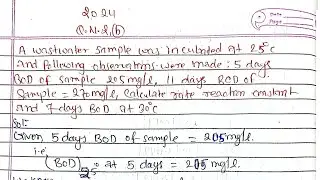 2024
Q.N.2.(b)
Date
Page
A wastwater sample was incubated at 25°c
and following observations were made : 5 days
BOD of sample 205mg/l, 11 days BOD of
sample = 270mg/l, Calculate rate reaction constant
and 7 days BOD at 30°c
Solⁿ
Given 5 days BOD of sample = 205mg/l.
i.e
(BOD)25° at 5 days = 205 mg/l.